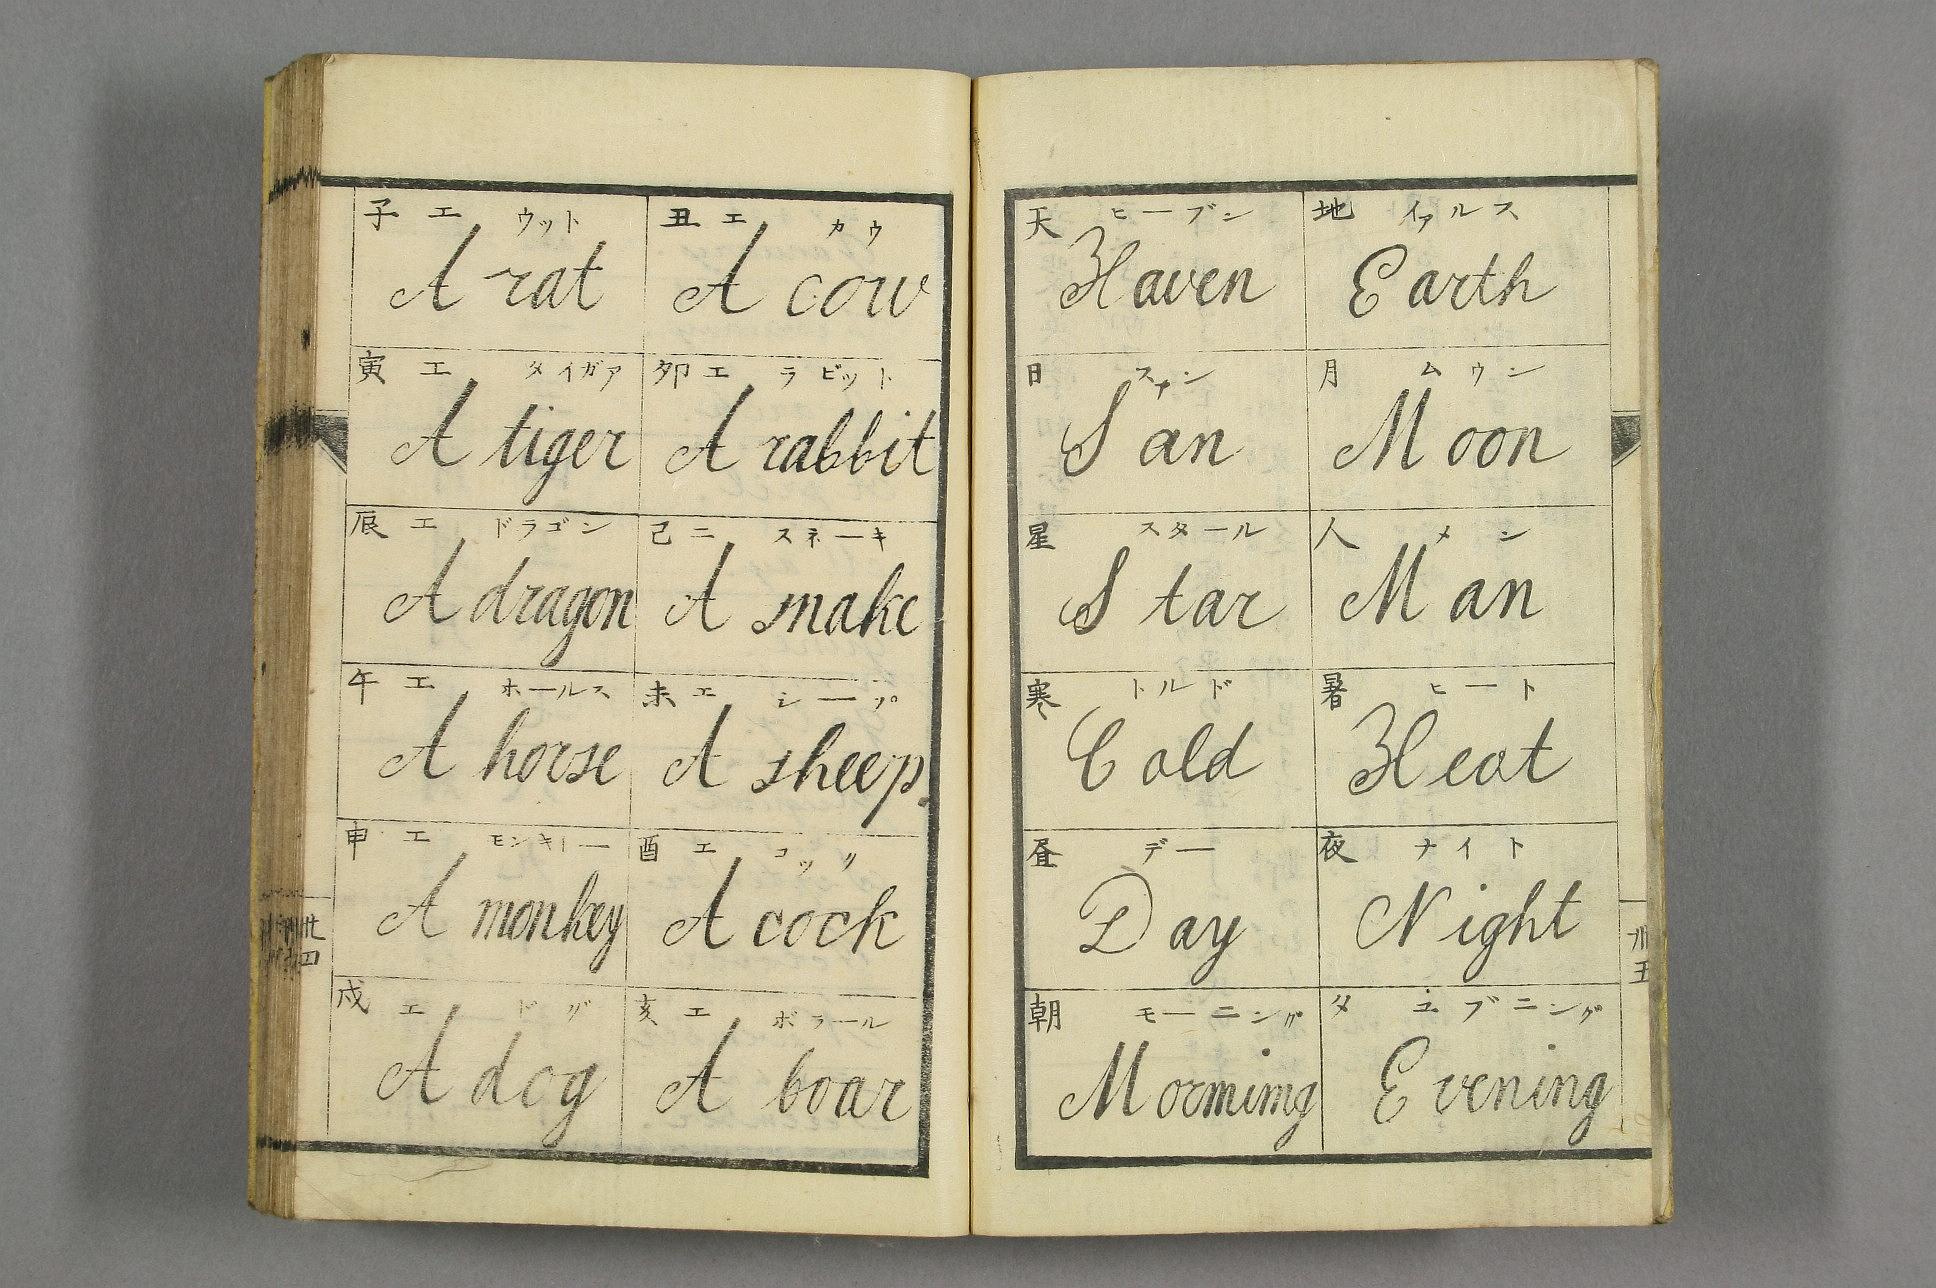 子 エ ウット
A rat
丑 エ カウ
A cow
寅 エ タイガァ
A tiger
卯 エ ラビット
A rabbit
辰 エ ドラゴン
A dragon
己 ニ スネーキ
A snake
午 エ ホールス
A horse
未 エ シープ
A sheep.
申 エ モンキー
A monkey
酉 エ コック
A cock
戌 エ ドグ
A dog
亥 エ ボラール
A boar
卅四
天 ヒーブン
Haven
地 イアルス
Earth
日 スァン
San
月 ムウン
Moon
星 スタール
Star
人 メン
Man
寒 トルド
Cold
暑 ヒート
Heat
昼 デー
Day
夜 ナイト
Night
朝 モーニング
Morming
夕 ユブニング
Evening
卅五